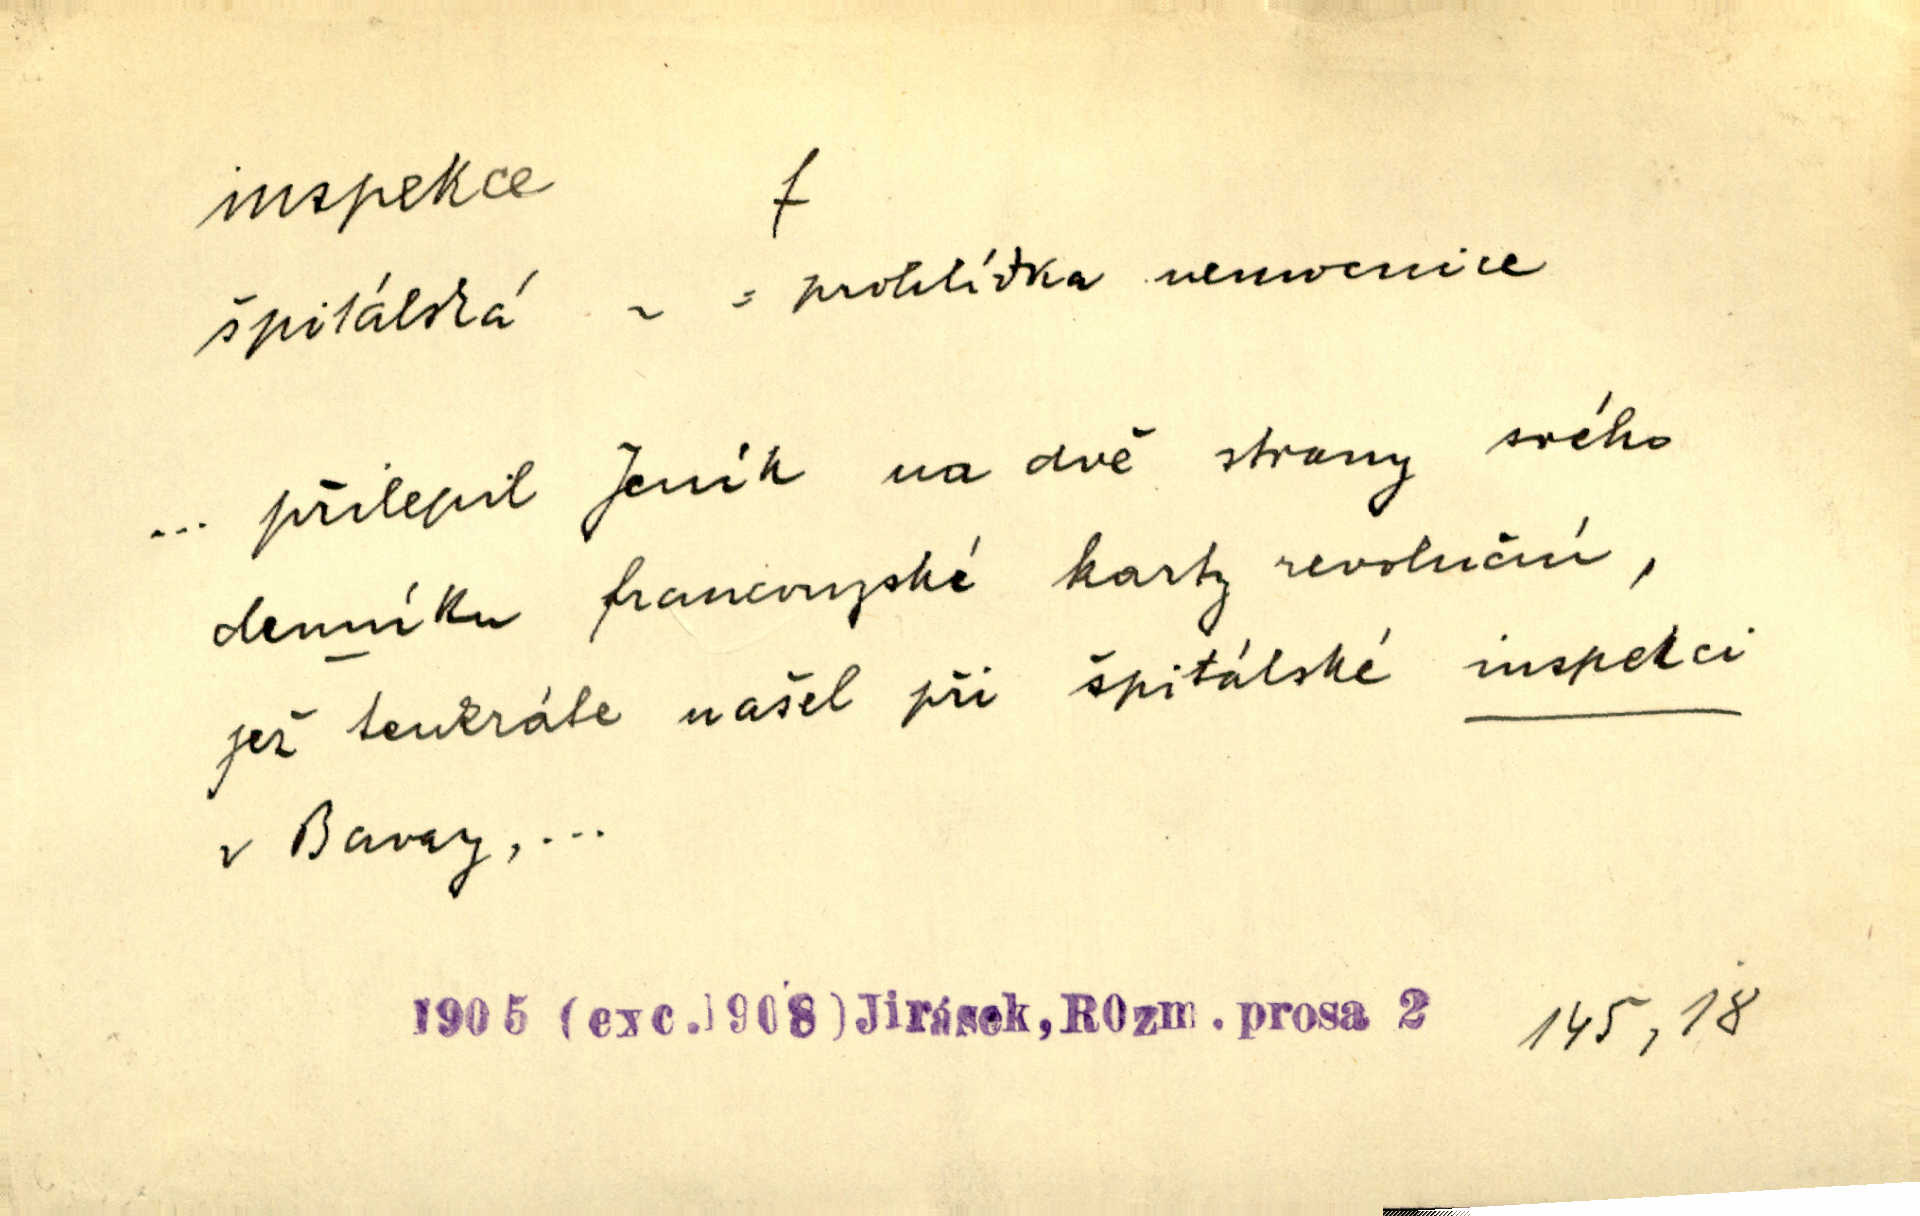 inspekce f
špitálská ~ = prohlídka nemocnice
... přilepil Jeník na dvě strany svého
denníku francouzské karty revoluční,
jež tenkráte našel při špitálské inspekci
v Bavay,...
1905 (exc.1908)Jirásek,ROzm.prosa 2 145,18